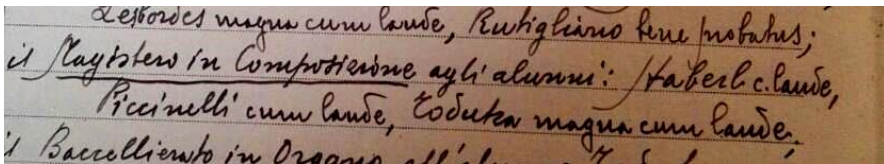 Lesbordes magna cum laude, Rutigliano bene probatus;
il Magistero in Composizione agli alunni: Haberl c. laude,
Piccinelli cum laude, Toduta magna cum laude.
il Baccellierato in Organo